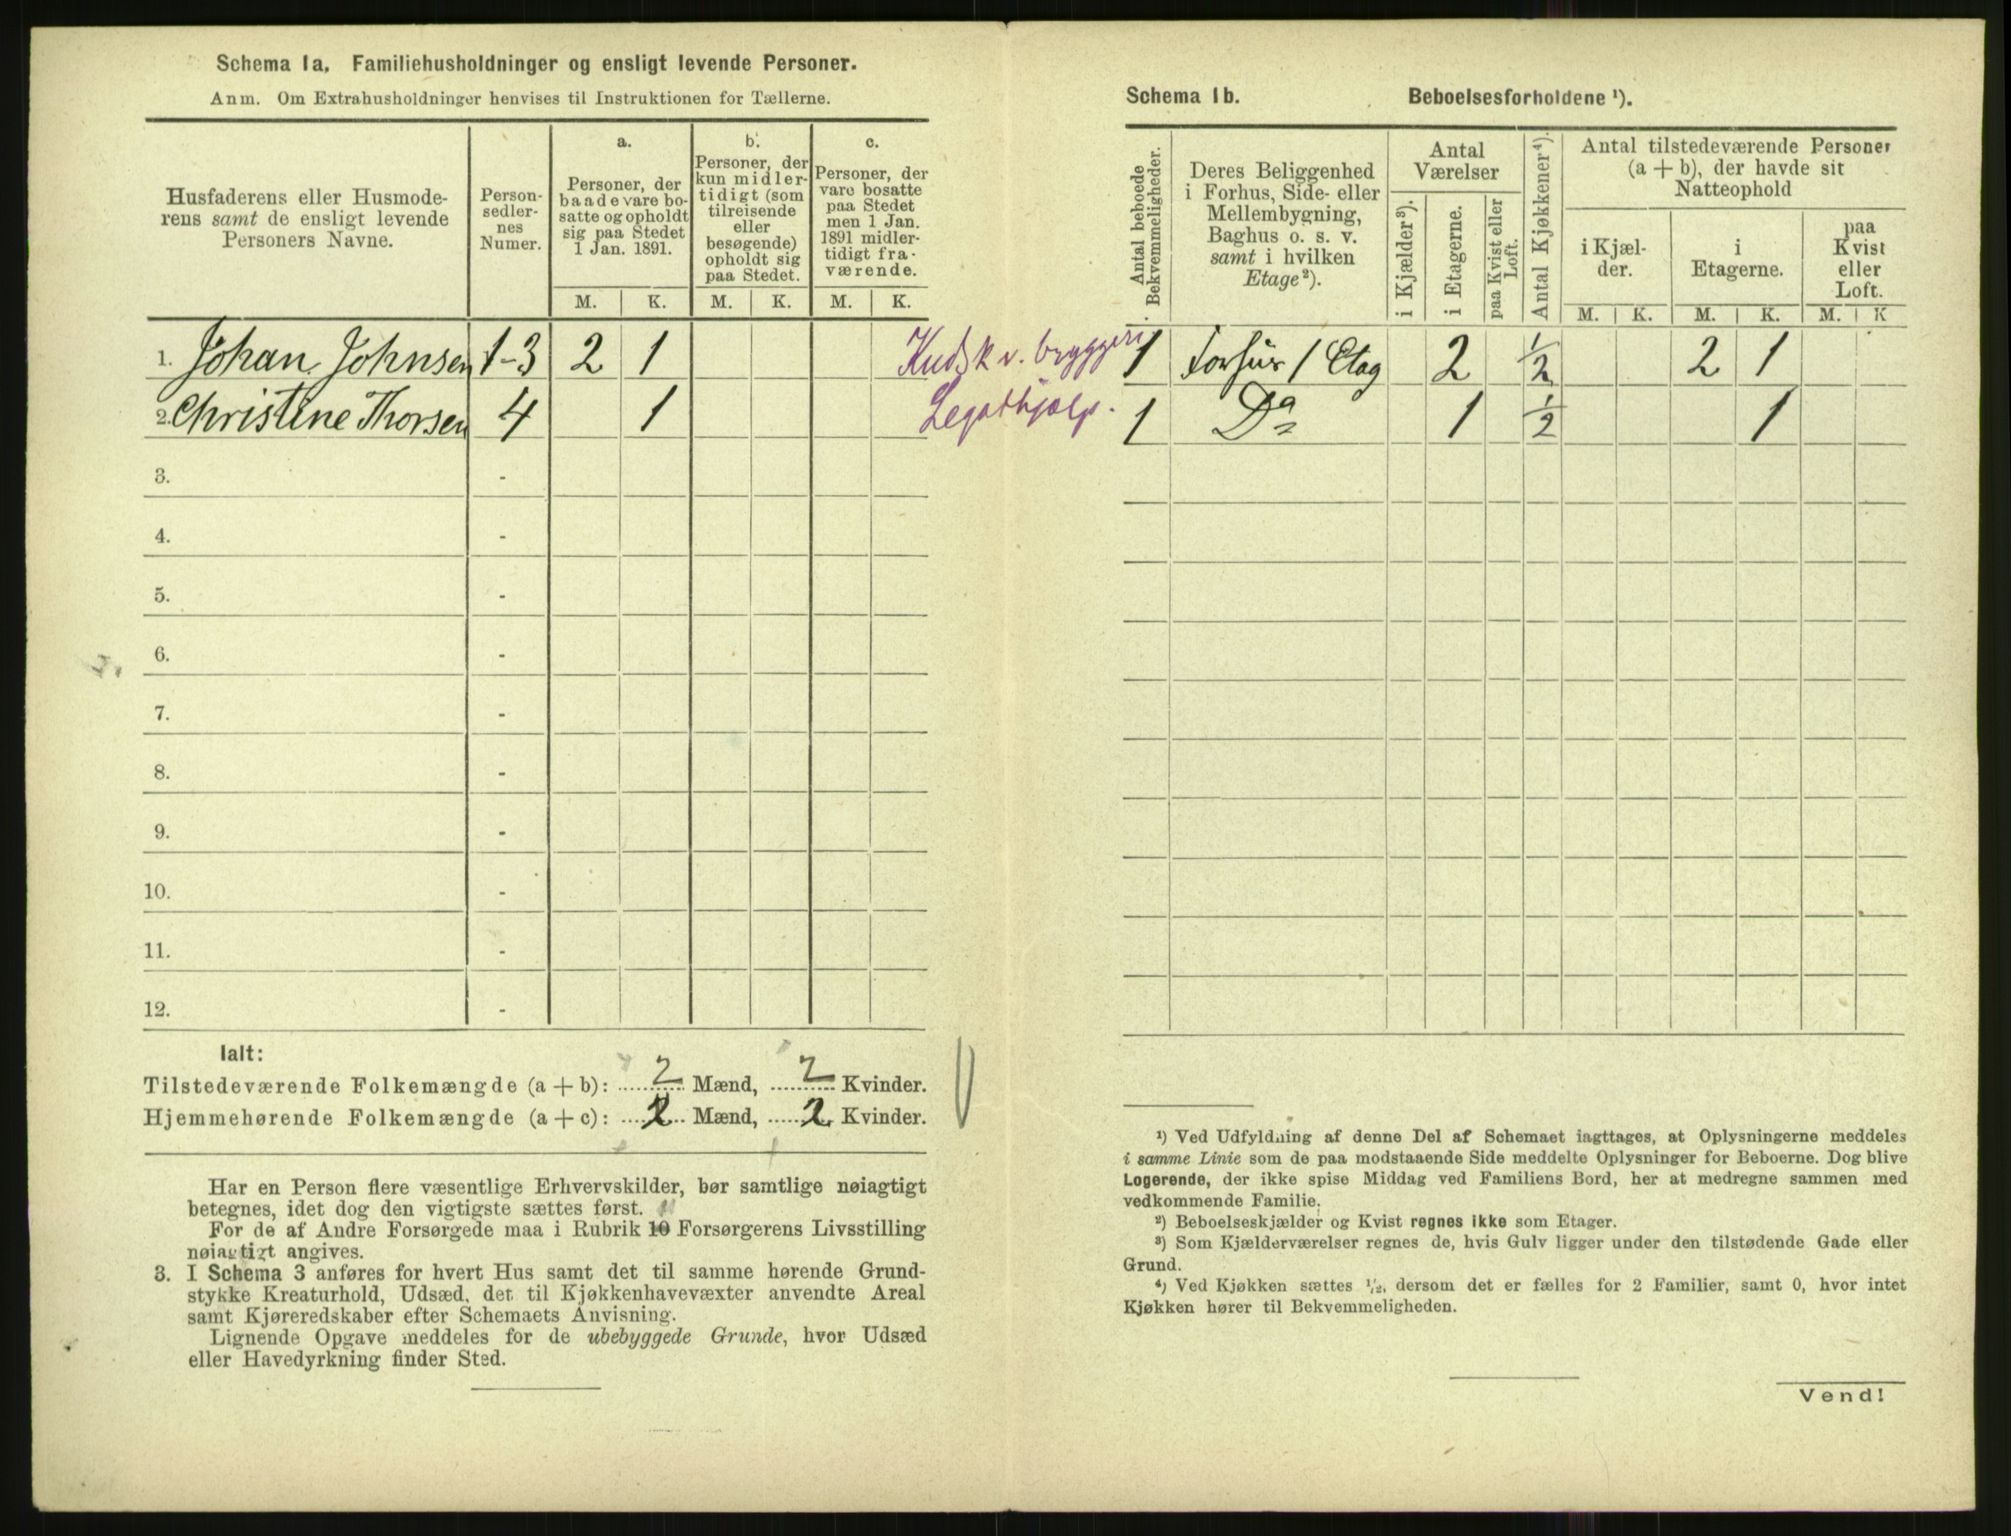 Schema 1a. Familiehusholdninger og ensligt levende Personer.
Anm. Om Extrahusholdninger henvises til Instruktionen for Tællerne.
Husfaderens eller Husmode-
rens samt de ensligt levende
Personers Navne.
Person-
sedler-
nes
Numer.
a.
Personer, der
baade vare bo-
satte og opholdt
sig paa Stedet
1 Jan. 1891.
b.
Personer, der
kun midler-
tidigt (som
tilreisende
eller
besøgende)
opholdt sig
paa Stedet.
c.
Personer, der
vare bosatte
paa Stedet
men 1 Jan.
1891 midler-
tidigt fra-
værende.
M. K. M. K. M. K.
1. Johan Johnsen 1-3 2 1 Kudsk v. bryggeri
2. Christine Thorsen 4 1 Legathjælp.
3. -
4. -
5. -
6. -
7. -
8. -
9. -
10. -
11. -
12. -
Ialt:
Tilstedeværende Folkemængde (a + b): 2 Mænd, 2 Kvinder.
Hjemmehørende Folkemængde (a + c): 2 Mænd, 2 Kvinder.
Har en Person flere væsentlige Erhvervskilder, bør samtlige nøiagtigt
betegnes, idet dog den vigtigste sættes først.
For de af Andre Forsørgede maa i Rubrik 10 Forsørgerens Livsstilling
nøiagtigt angives.
3. I Schema 3 anføres for hvert Hus samt det til samme hørende Grund-
stykke Kreaturhold, Udsæd, det til Kjøkkenhavevæxter anvendte Areal
samt Kjøreredskaber efter Schemaets Anvisning.
Lignende Opgave meddeles for de ubebyggede Grunde, hvor Udsæd
eller Havedyrkning finder Sted.
Schema 1b. Beboelsesforholdene ¹).
Antal beboede
Bekvemmeligheder.
Deres Beliggenhed
i Forhus, Side- eller
Mellembygning,
Baghus o. s. v.
samt i hvilken
Etage ²).
Antal
Værelser
i Kjælder ³).
i Etagerne.
paa Kvist eller
Loft.
Antal Kjøkkener ⁴).
Antal tilstedeværende Personer
(a + b), der havde sit
Natteophold
i Kjæl-
der.
i
Etagerne.
paa
Kvist
eller
Loft.
M. K. M. K. M. K
1 Forhus 1 Etag 2 1/2 2 1
1 Do 1 1/2 1
¹) Ved Udfyldning af denne Del af Schemaet iagttages, at Oplysningerne meddeles
i samme Linie som de paa modstaaende Side meddelte Oplysninger for Beboerne. Dog blive
Logerende, der ikke spise Middag ved Familiens Bord, her at medregne sammen med
vedkommende Familie.
²) Beboelseskjælder og Kvist regnes ikke som Etager.
³) Som Kjælderværelser regnes de, hvis Gulv ligger under den tilstødende Gade eller
Grund.
⁴) Ved Kjøkken sættes ¹/₂, dersom det er fælles for 2 Familier, samt 0, hvor intet
Kjøkken hører til Bekvemmeligheden.
Vend!